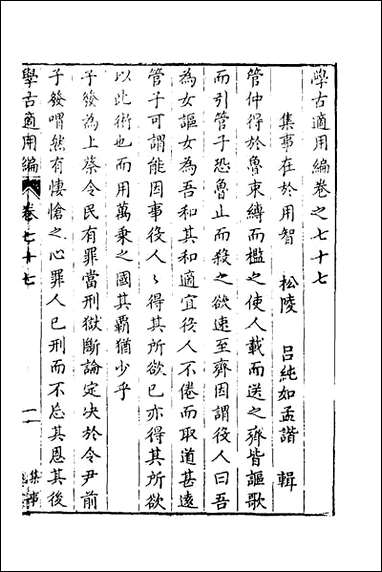 學古適用編卷之七十七
集事在於用智　松陵　呂純如孟諧　輯
管仲得於魯束縛而檻之使人載而送之齊皆謳歌
而引管子恐魯止而殺之欲速至齊因謂役人曰吾
為女謳女為吾和其和適宜役人不倦而取道甚遠
管子可謂能因事役人〻得其所欲已亦得其所欲
以此術也而用萬乘之國其霸猶少乎
子發為上蔡令民有罪當刑獄斷論定决於令尹前
子發喟然有悽愴之心罪人已刑而不忘其恩其後
學古適用編　卷七十七　一　集事